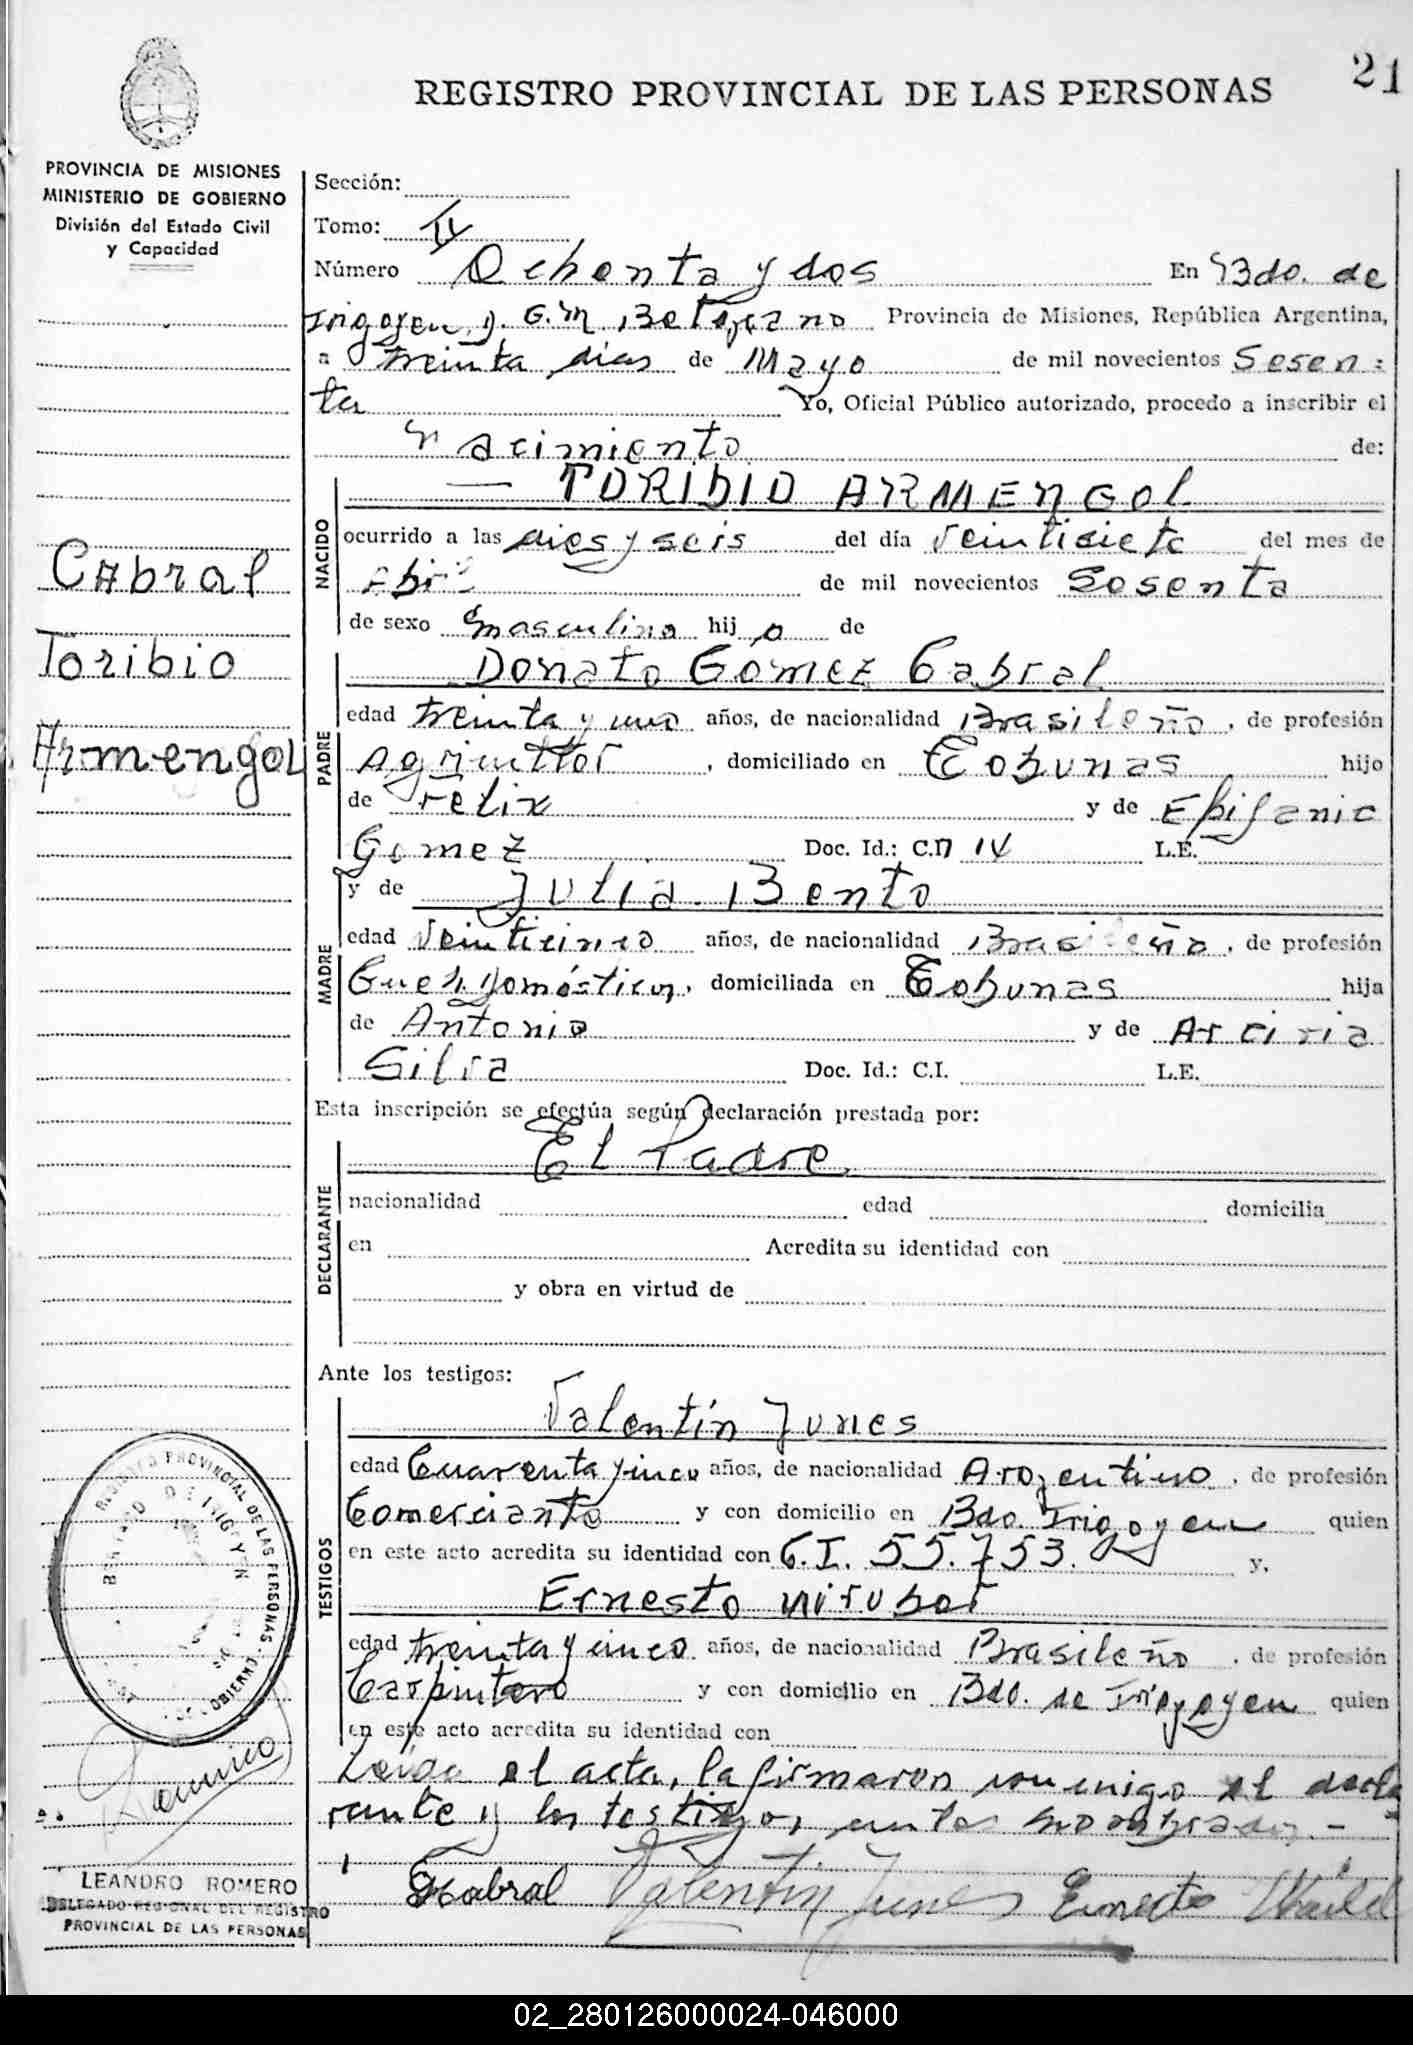 21
REGISTRO PROVINCIAL DE LAS PERSONAS
PROVINCIA DE MISIONES
MINISTERIO DE GOBIERNO
División del Estado Civil
y Capacidad
Cabral
Toribio
Armengol
Sección:
Tomo: IV
Número Ochenta y dos En Bdo. de
Irigoyen, D. G. M. Belgrano Provincia de Misiones, República Argentina,
a treinta dias de Mayo de mil novecientos Sesen=
ta Yo, Oficial Público autorizado, procedo a inscribir el
Nacimiento de:
NACIDO
— TORIBIO ARMENGOL
ocurrido a las dies y seis del día Veintisiete del mes de
Abril de mil novecientos Sesenta
de sexo masculino hijo de
PADRE
Donato Gómez Cabral
edad treinta y uno años, de nacionalidad Brasileño, de profesión
Agricultor, domiciliado en Tobunas hijo
de Felix y de Epifania
Gomez Doc. Id.: C.I. L.E.
MADRE
y de Julia Bento
edad Veinticinco años, de nacionalidad Brasileña, de profesión
Queh. Domésticos, domiciliada en Tobunas hija
de Antonio y de
Silva Doc. Id.: C.I. L.E.
Esta inscripción se efectúa según declaración prestada por:
DECLARANTE
El Padre
nacionalidad edad domicilia
en Acredita su identidad con
y obra en virtud de
Ante los testigos:
TESTIGOS
Valentín Junes
edad Cuarenta y cinco años, de nacionalidad Argentino, de profesión
Comerciante y con domicilio en Bdo. Irigoyen quien
en este acto acredita su identidad con C.I. 55.753. y,
Ernesto
edad treinta y cinco años, de nacionalidad Brasileño, de profesión
Carpintero y con domicilio en Bdo. de Irigoyen quien
en este acto acredita su identidad con
Leida el acta, la firmaron conmigo el decla
rante y los testigos, nombrados.-
Cabral Valentín Junes Ernesto
REGISTRO PROVINCIAL DE LAS PERSONAS
BERNARDO DE IRIGOYEN
LEANDRO ROMERO
DELEGADO REGIONAL DEL REGISTRO
PROVINCIAL DE LAS PERSONAS
02_280126000024-046000